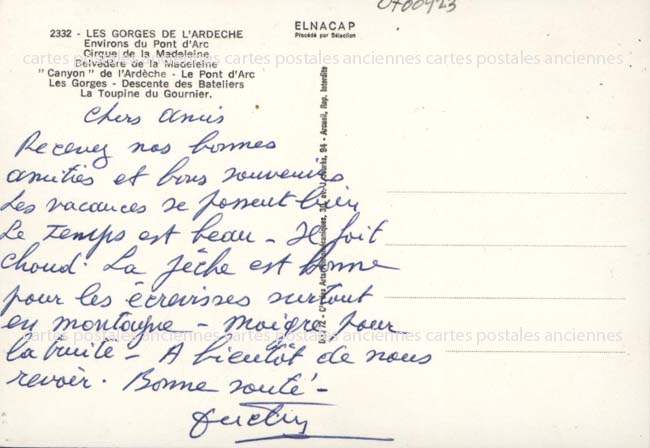 0700923
ELNACAP
Procédé par Sélection
2332 - LES GORGES DE L'ARDECHE
Environs du Pont d'Arc
Cirque de la Madeleine
Belvédère de la Madeleine
" Canyon " de l'Ardèche - Le Pont d'Arc
Les Gorges - Descente des Bateliers
La Toupine du Gournier.
cartes postales anciennes cartes postales anciennes cartes postales anciennes
Chers amis
Recevez nos bonnes
amitiés et bons souvenirs
cartes postales anciennes cartes postales anciennes cartes postales anciennes
Les vacances se passent bien
Le Temps est beau - Il fait
chaud. La pêche est bonne
pour les écrevisses surtout
en montagne - maigre pour
cartes postales anciennes cartes postales anciennes cartes postales anciennes
la truite - A bientôt de nous
revoir. Bonne santé -
94 - Arcueil, Rep. Interdite